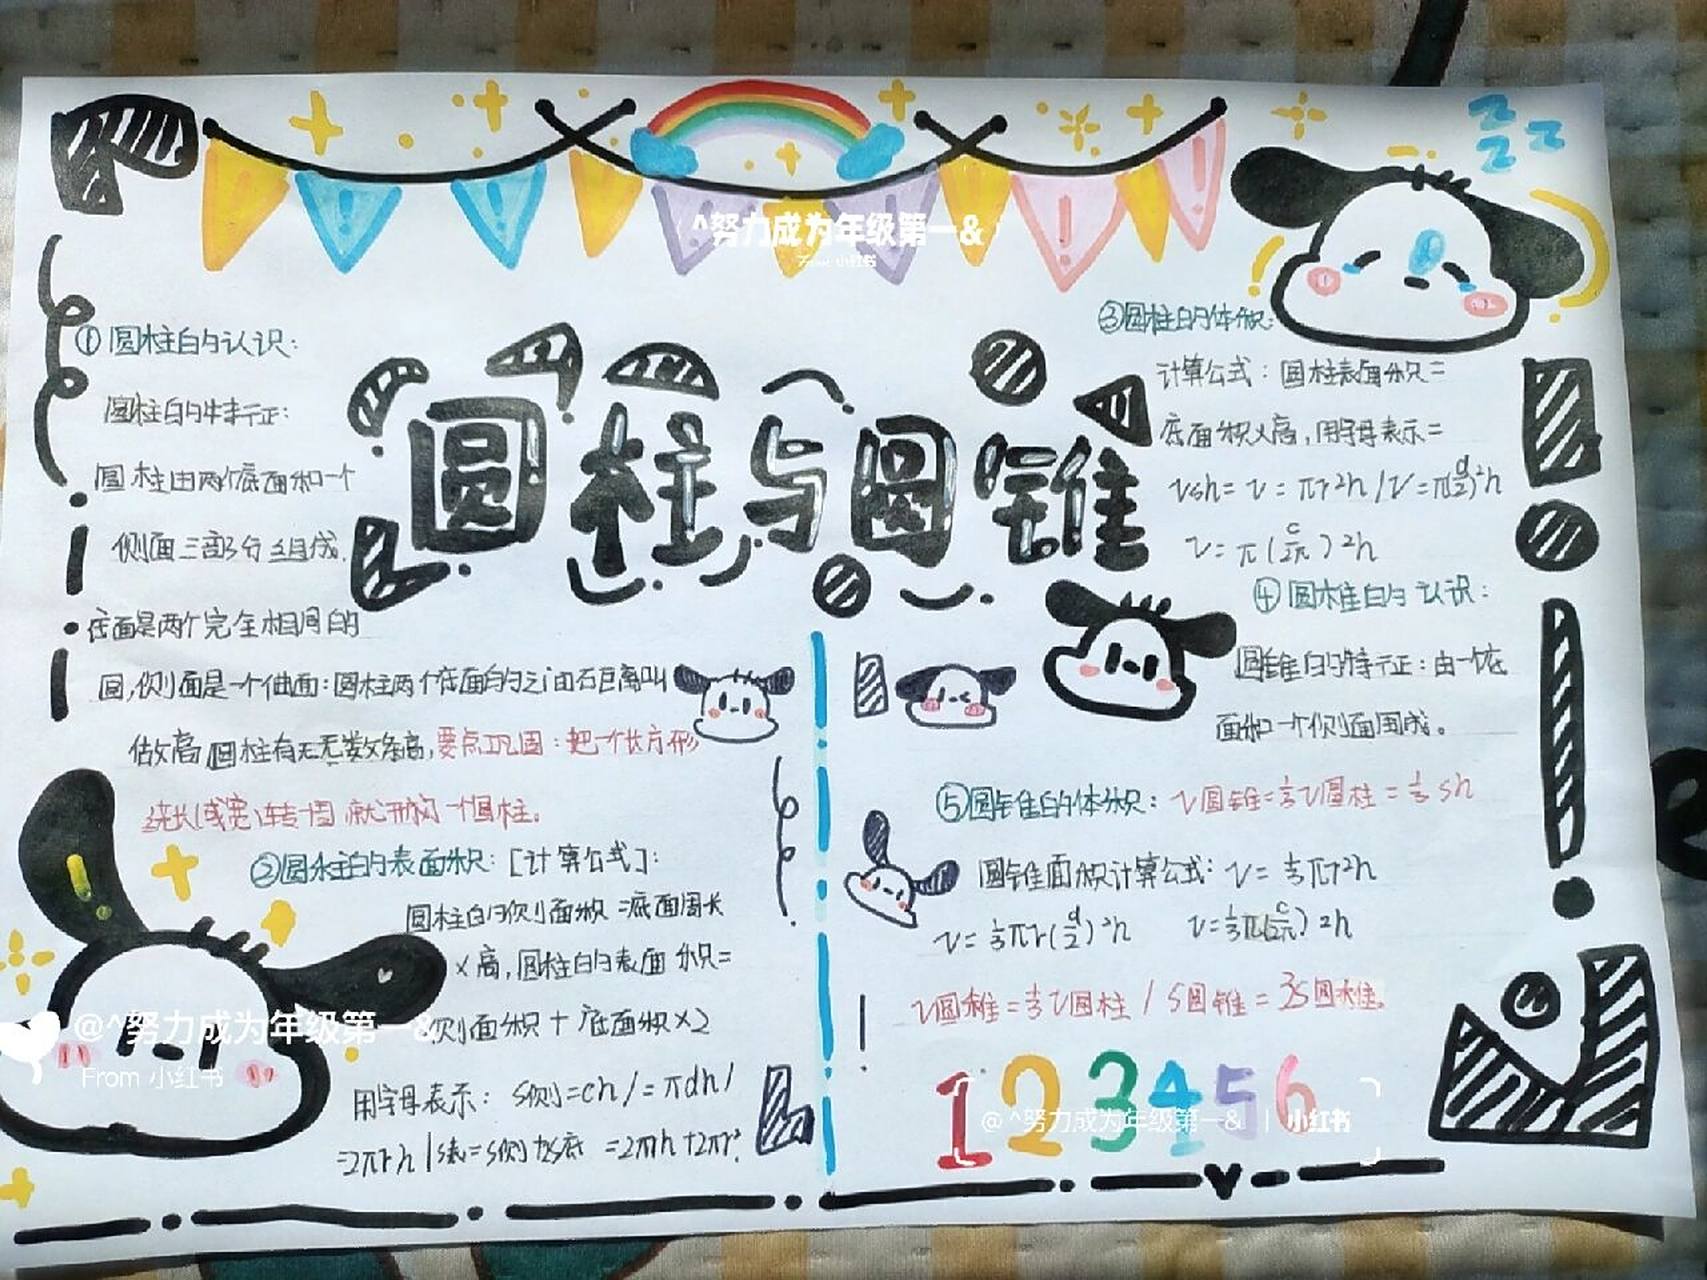 ^努力成为年级第一&
From 小红书
圆柱与圆锥
①圆柱的认识:
圆柱的特征:
圆柱由两个底面和一个
侧面三部分组成.
底面是两个完全相同的
圆,侧面是一个曲面:圆柱两个底面的之间的距离叫
做高圆柱有无数条高,要点巩固:把一个长方形
绕长(或宽)转一周,就形成一个圆柱。
②圆柱的表面积:[计算公式]:
圆柱的侧面积=底面周长
×高,圆柱的表面积=
侧面积+底面积×2
用字母表示: S侧=ch/=πdh/
=2πrh/S表=S侧+2S底 =2πrh+2πr².
③圆柱的体积:
计算公式:圆柱表面积=
底面积×高,用字母表示=
Vsh=V=πr²h/V=π(d/2)²h
V=π(c/2π)²h
④圆柱的认识:
圆锥的特征:由一个底
面和一个侧面围成。
⑤圆锥的体积:V圆锥=1/3V圆柱=1/3sh
圆锥面积计算公式:V=1/3πr²h
V=1/3πr(d/2)²h V=1/3π(c/2π)²h
V圆锥=1/3V圆柱/S圆锥=3S圆锥.
123456
zzz
@^努力成为年级第一&
From 小红书
@^努力成为年级第一& | 小红书